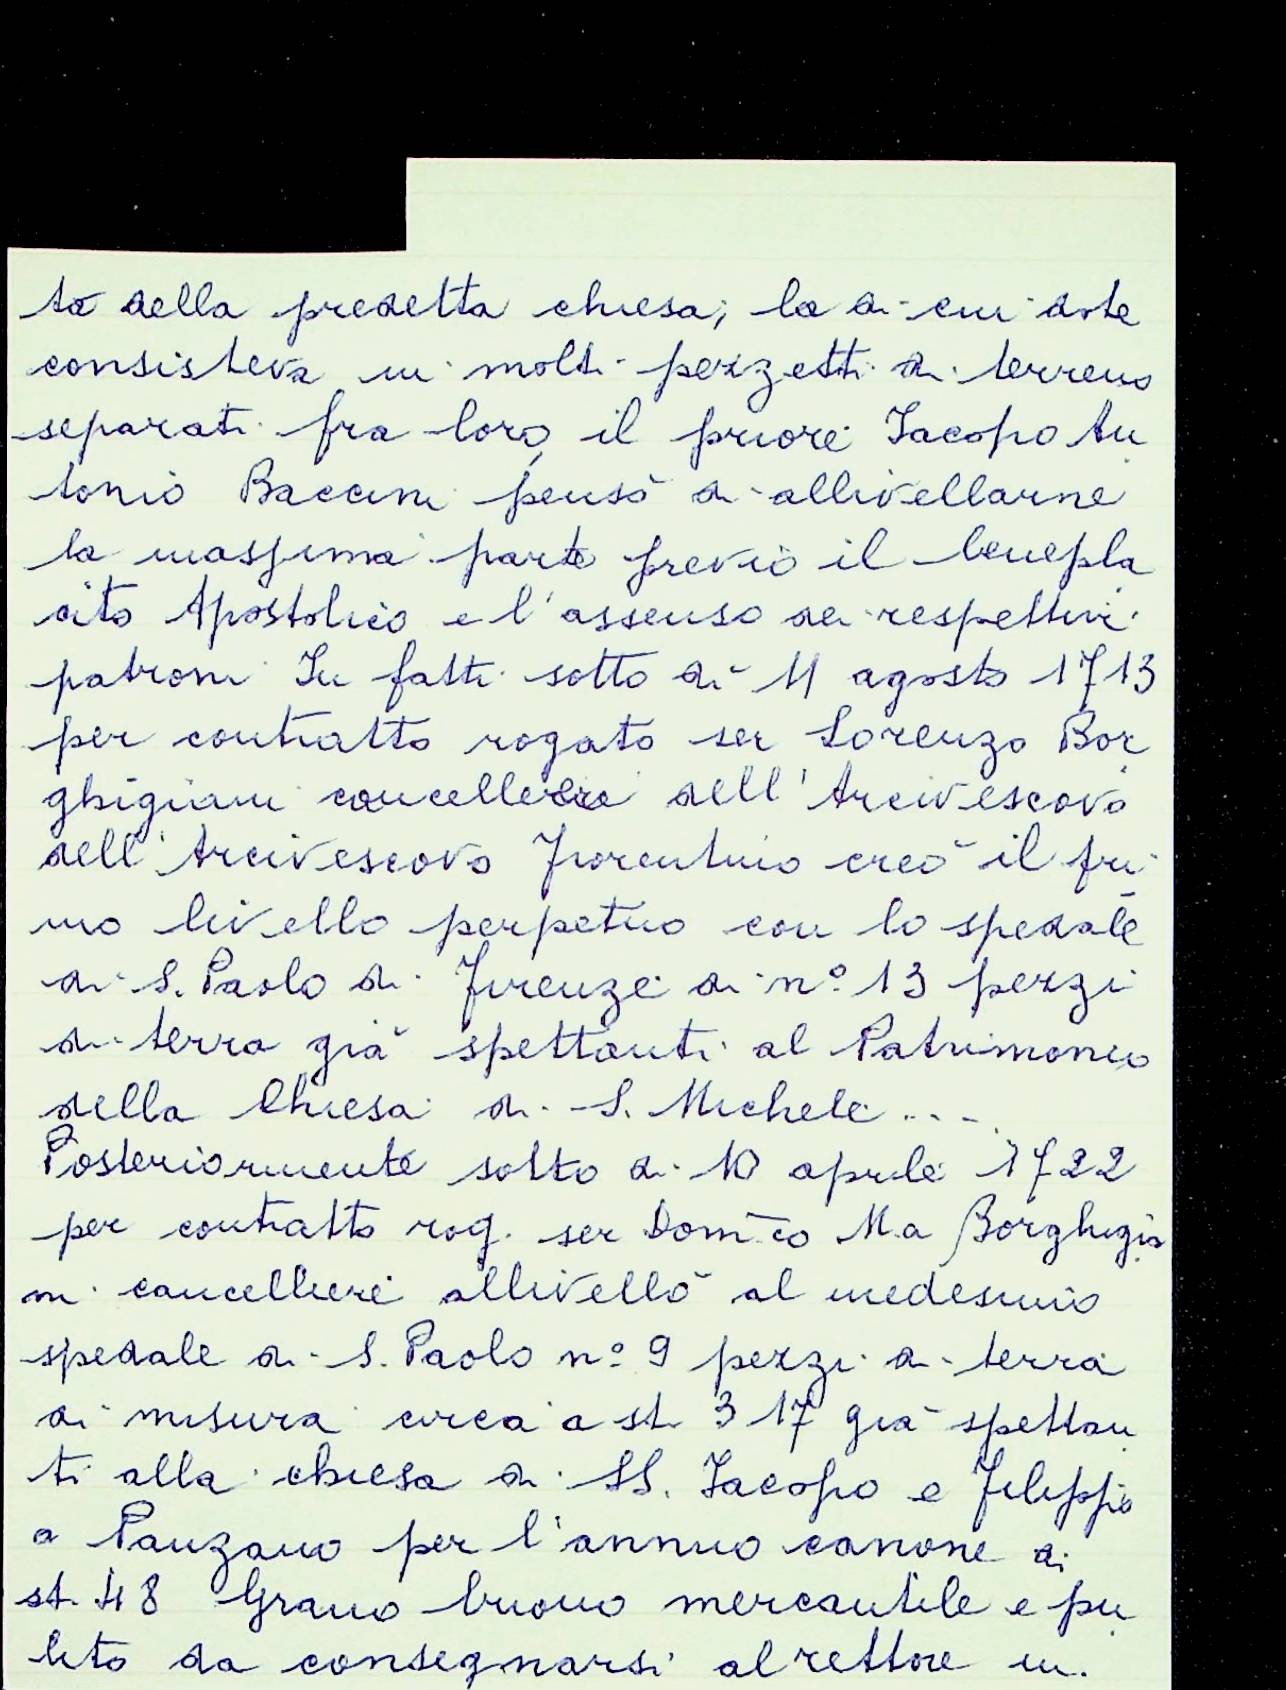 to della predetta chiesa; la di cui dote
consisteva in molti pezzetti di terreno
separati fra loro, il priore Jacopo An
tonio Baccini pensò di allivellarne
la massima parte previo il benepla
cito Apostolico e l'assenso dei respettivi
patroni In fatti sotto dì 11 agosto 1713
per contratto rogato ser Lorenzo Bor
ghigiani cancelliere dell'Arcivescovo
dell'Arcivescovo Fiorentino creò il pri
mo livello perpetuo con lo spedale
di S. Paolo di Firenze di n° 13 pezzi
di terra già spettanti al Patrimonio
della Chiesa di S. Michele ....
Posteriormente sotto dì 10 aprile 1722
per contratto rog. ser Dom̃co M.a Borghigia
ni cancelliere allivellò al medesimo
spedale di S. Paolo n° 9 pezzi di terra
di misura circa a st. 317 già spettan
ti alla chiesa di SS. Jacopo e Filippo
a Panzano per l'annuo canone di
st. 48 Grano buono mercantile e pu
lito da consegnarsi al rettore in